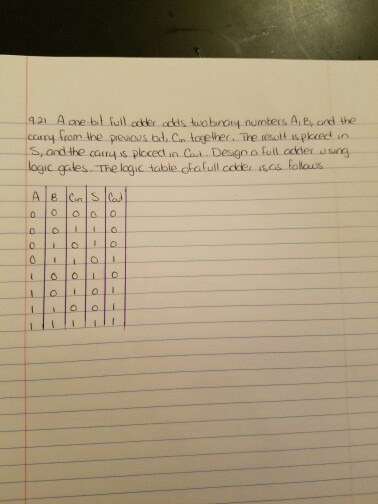 9.21 A one-bit full adder adds two binary numbers A, B, and the
carry from the previous bit, Cin together. The result is placed in
S, and the carry is placed in Cout. Design a full adder using
logic gates. The logic table of a full adder is as follows
A B Cin S Cout
0 0 0 0 0
0 0 1 1 0
0 1 0 1 0
0 1 1 0 1
1 0 0 1 0
1 0 1 0 1
1 1 0 0 1
1 1 1 1 1